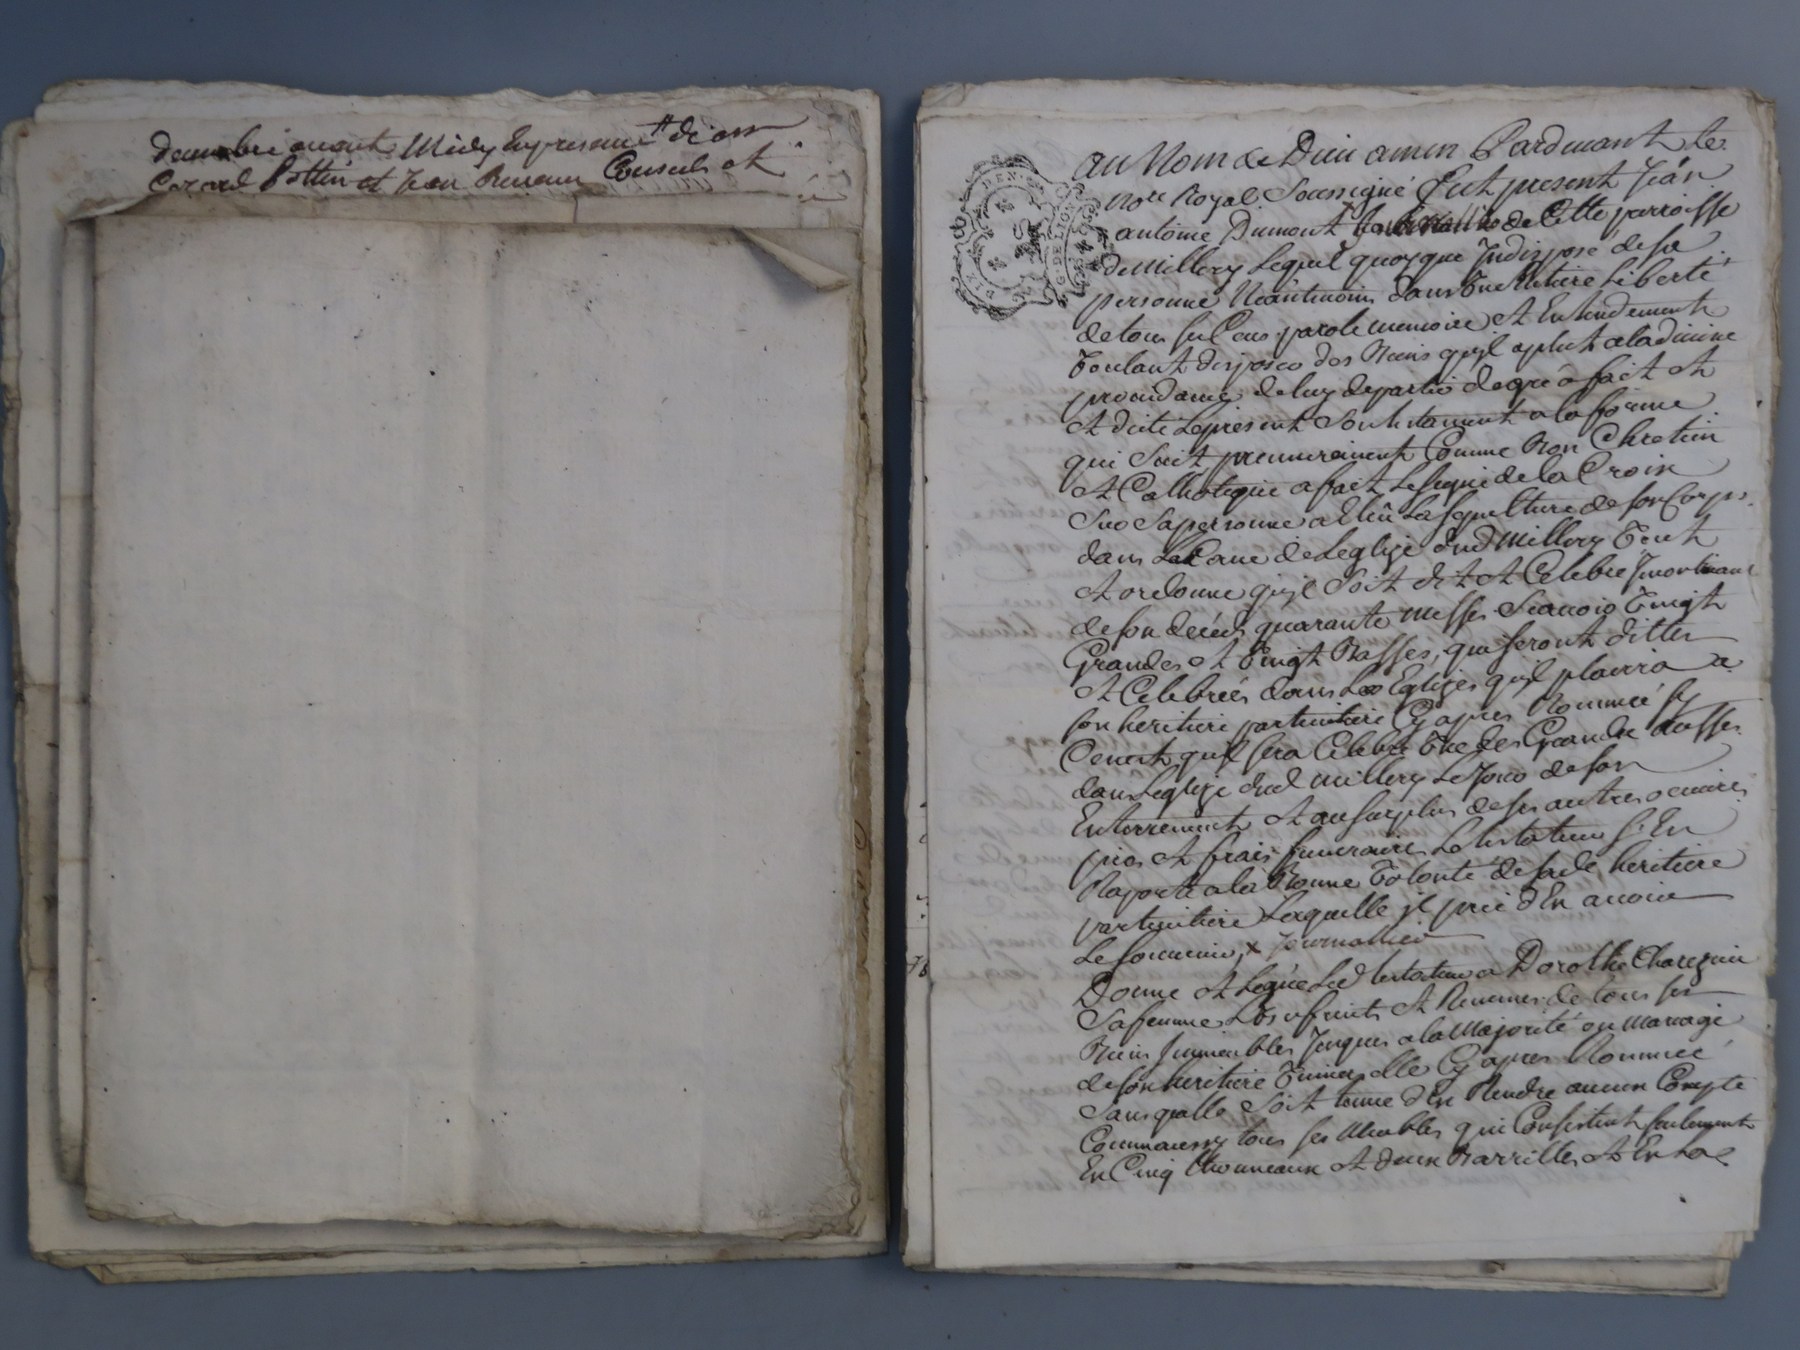 avant Midy En presence de
et Jean Consuls et
DEN
G. DE LION
au Nom de Dieu amen Pardevant le
No.re Royal Soussigné fut present Jean
antoine Dumont de Cette parroisse
de Millery Lequel quoyque Indisposé de sa
personne Neantmoins dans Une Entiere Liberté
de tous ses Sens parole memoire et Entendement
Voulant disposer des Biens qu'jl a plut a la divine
providance de luy departir de gré a fait et
et dicté Le present Son testament a la forme
qui Suit premierement Comme Bon Chretien
et Catholique a fait Le Signe de la Croix
Sur Sa personne a Eleü La Sepulture de son Corps
dans La Cave de Leglize dud Millery Veut
et ordonne qu'jl Soit dit et Celebré
de son decéd quarante Messes Scavoir Vingt
Grandes et Vingt Basses, qui seront dittes
et Celebrées dans Les Eglizes qu'jl plairra a
son heritiere particuliere Cy apres Nommée
qu'jl sera Celebré Une des Grandes Messes
dans Leglize dud Millery Le Jour de son
Enterrement et au surplus de ses autres oeuvres
pies et frais funeraires Le testateur S'En
Raporte a la Bonne Volonté de sade heritiere
particuliere Laquelle jl prie d'En avoir
Le souvenir x Journallier
Donne et Legue Led testateur a Dorothé
Sa femme Les usfruits et Revenus de tous ses
Biens Jmmeubles Jusques a la Majorité ou Mariage
de son heritiere Universelle Cy apres Nommée
Sans qu'elle Soit tenue d'En Rendre aucun Compte
Comm'aussy tous ses Meubles qui Consistent seulement
En Cinq thonneaux et deux Barrilles et En